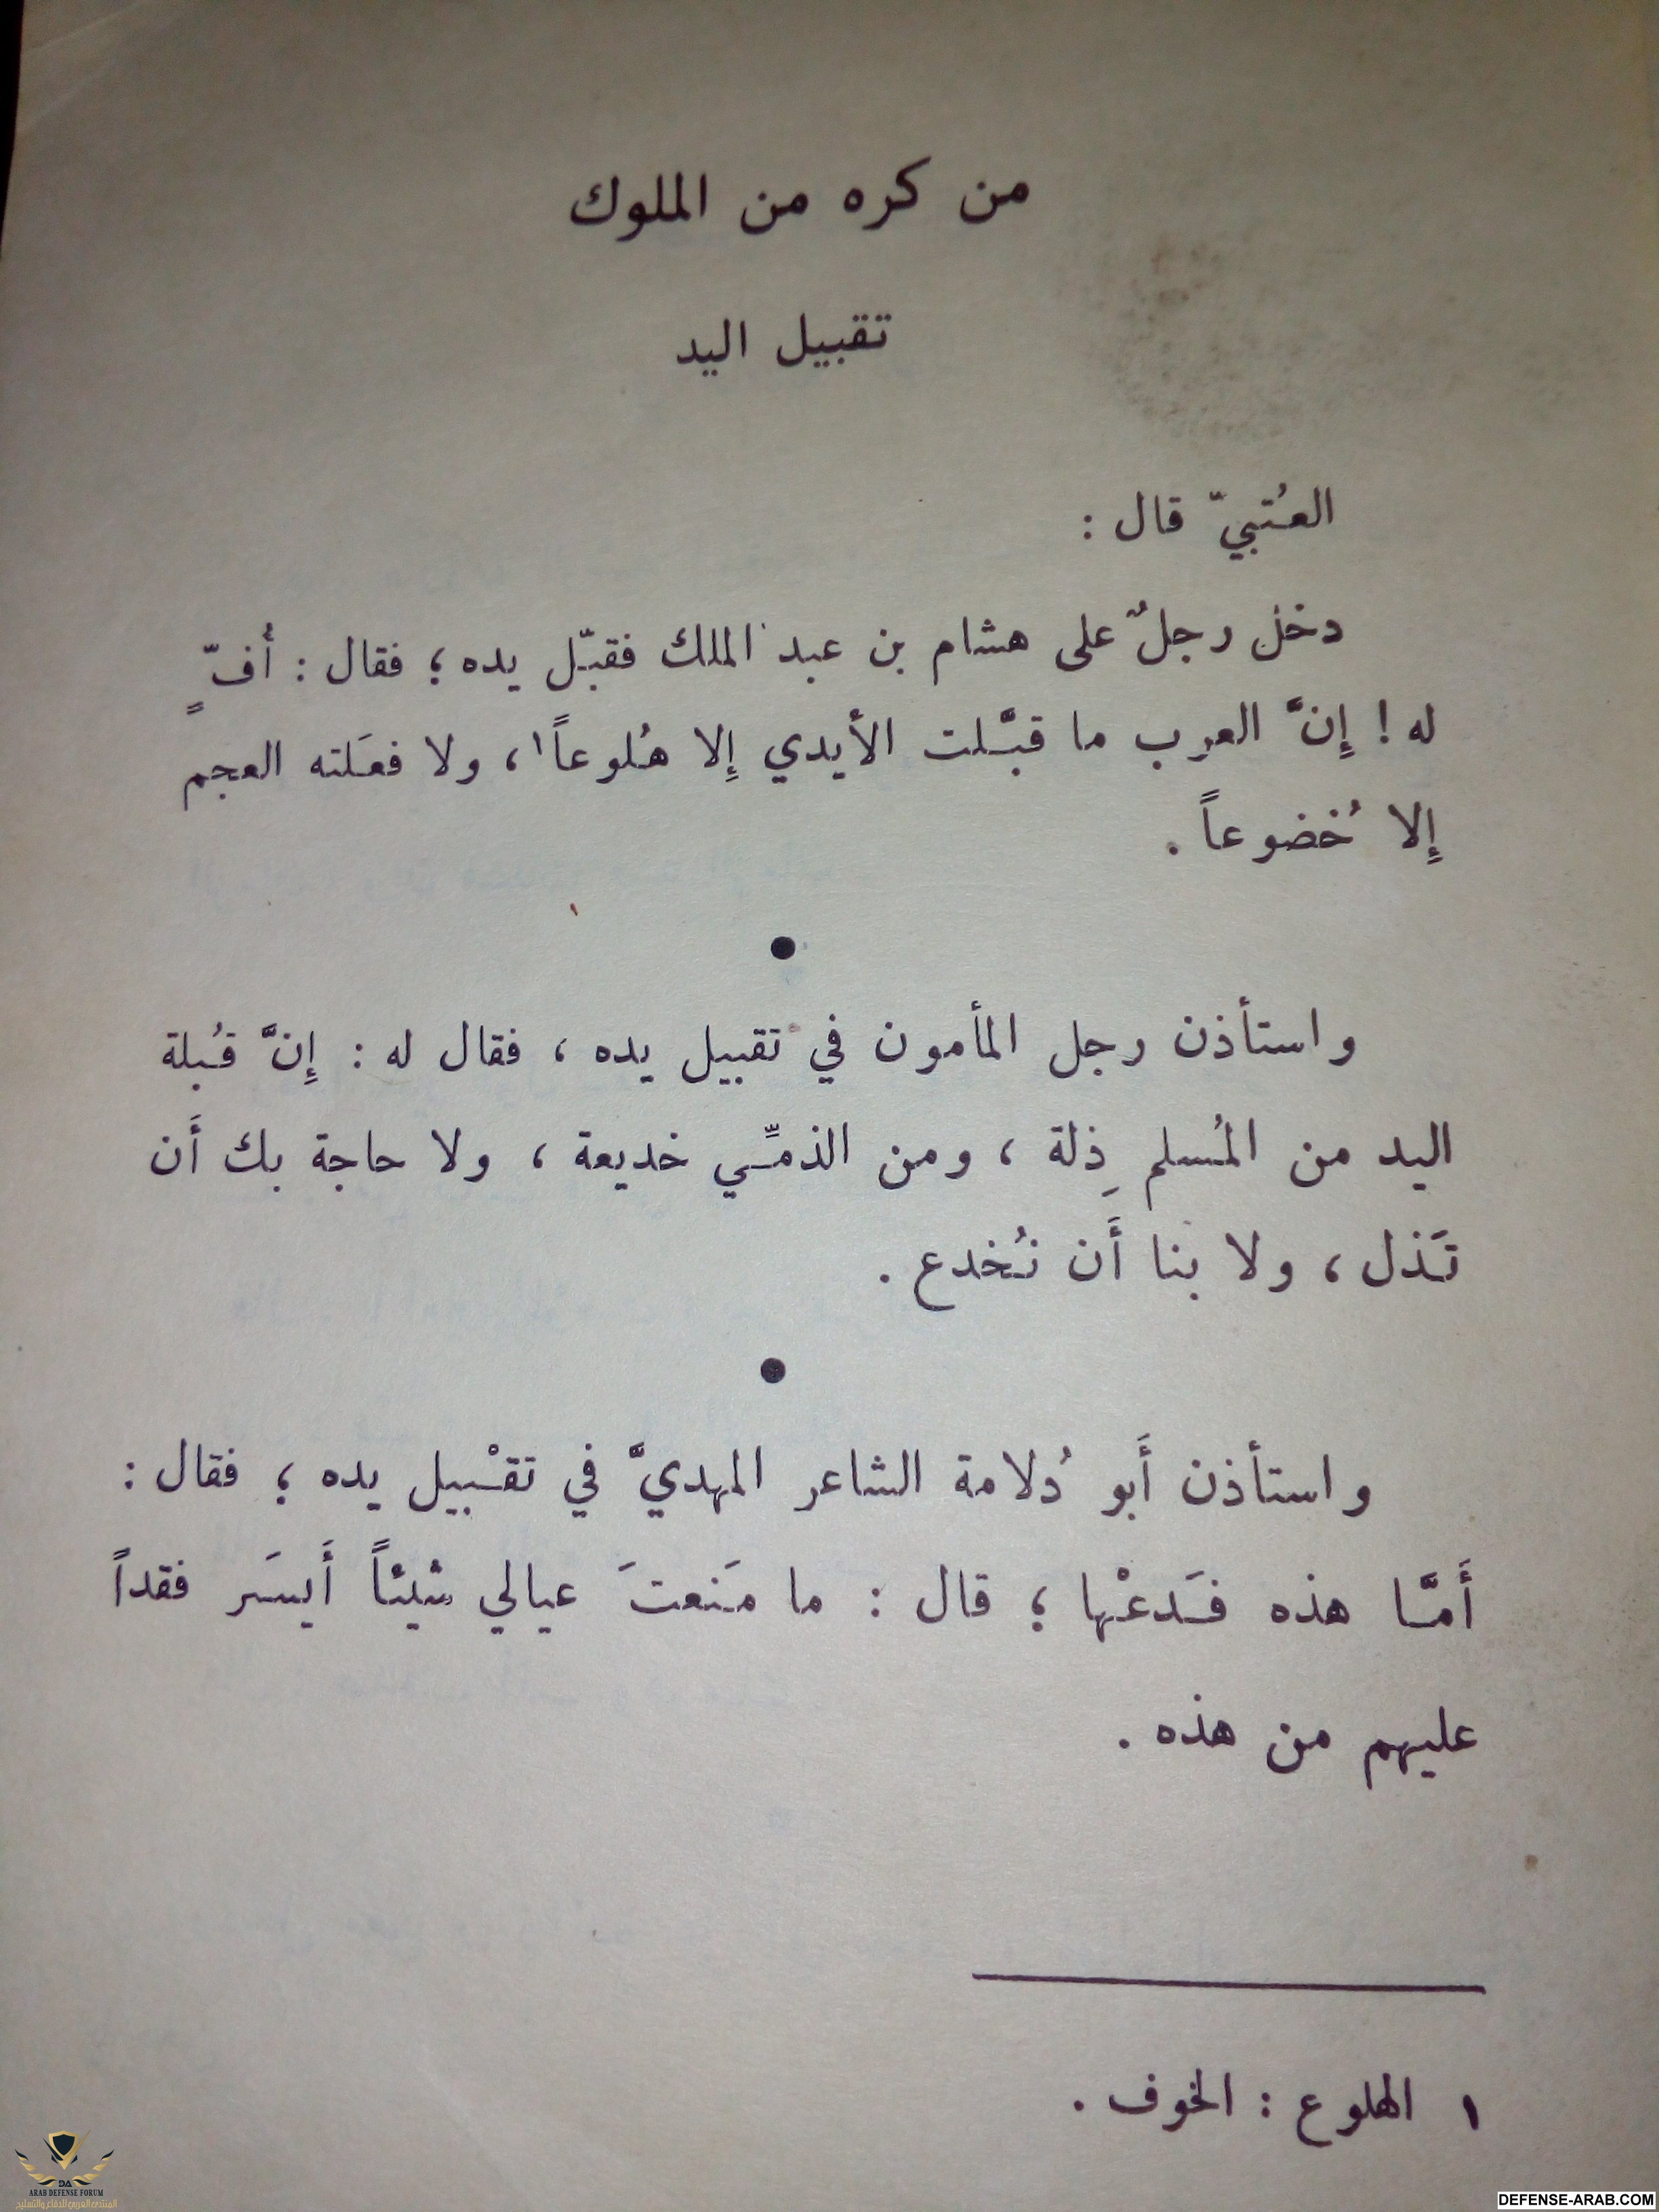 من كره من الملوك
تقبيل اليد
العُتبيّ قال :
دخل رجلٌ على هشام بن عبد الملك فقبّل يده ؛ فقال : أُفّـٍ
له ! إِنَّ العرب ما قبَّلت الأيدي إِلا هُلوعاً١ ، ولا فعَلته العجم
إِلا خُضوعاً .
●
واستأذن رجل المأمون في تقبيل يده ، فقال له : إِنَّ قُبلة
اليد من المُسلم ذِلة ، ومن الذمِّي خديعة ، ولا حاجة بك أَن
تَذل ، ولا بنا أَن نُخدع .
●
واستأذن أَبو دُلامة الشاعر المهديَّ في تقْبيل يده ؛ فقال :
أَمَّا هذه فَدعْها ؛ قال : ما مَنعتَ عيالي شيئاً أَيسَر فقداً
عليهم من هذه .
١ الهلوع : الخوف .
ARAB DEFENSE FORUM
المنتدى العربي للدفاع والتسليح
DEFENSE-ARAB.COM